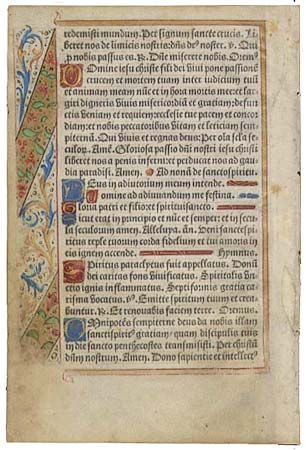 redemisti mundum. Per signum sancte crucis. Li⸗
beret nos de inimicis nostris: dñs deº noster. ℣. Qui
p nobis passus es. ℟. Dñe miserere nobis. Oremꝰ
Domine iesu christe fili dei viui pone passionē
crucem et mortem tuam inter iudicium tuū
et animam meam nūc et in hora mortis mee: et lar⸗
giri digneris viuis misericordiā et gratiam: defun
ctis veniam et requiem: ecclesie tue pacem et concor
diam: et nobis peccatoribus vitam et leticiam sem⸗
piternā. Qui viuis et regnas deus: Per oīa secla se
culorꝝ. Amē. Gloriosa passio dñi nostri iesu christi
liberet nos a penis inferni: et perducat nos ad gau
dia paradisi. Amen. Ad nonā de sancto spiritu.
Deus in adiutorium meum intende.
Domine ad adiuuandum me festina.
Gloria patri et filio: et spiritui sancto.
Sicut erat in principio et nūc et semper: et in secula
seculorum amen. Alleluya. añ. Veni sancte spiri⸗
tus reple tuorum corda fidelium et tui amoris in
eis ignem accende. Hymnus.
Spiritus paraclytus fuit appellatus. Donū
dei caritas fons viuificatus. Spiritalis vn
ctio ignis inflammatus. Septiformis gratia cari
sma vocatus. ℣. Emitte spiritum tuum et crea⸗
buntur. ℟. Et renouabis faciem terre. Oremus.
Omnipotēs sempiterne deus da nobis illam
sancti spiritꝰ gratiam: quam discipulis tuis
in die sancto penthecostes transmisisti. Per christū
dñm nostrum. Amen. Dono sapientie et intellectꝰ